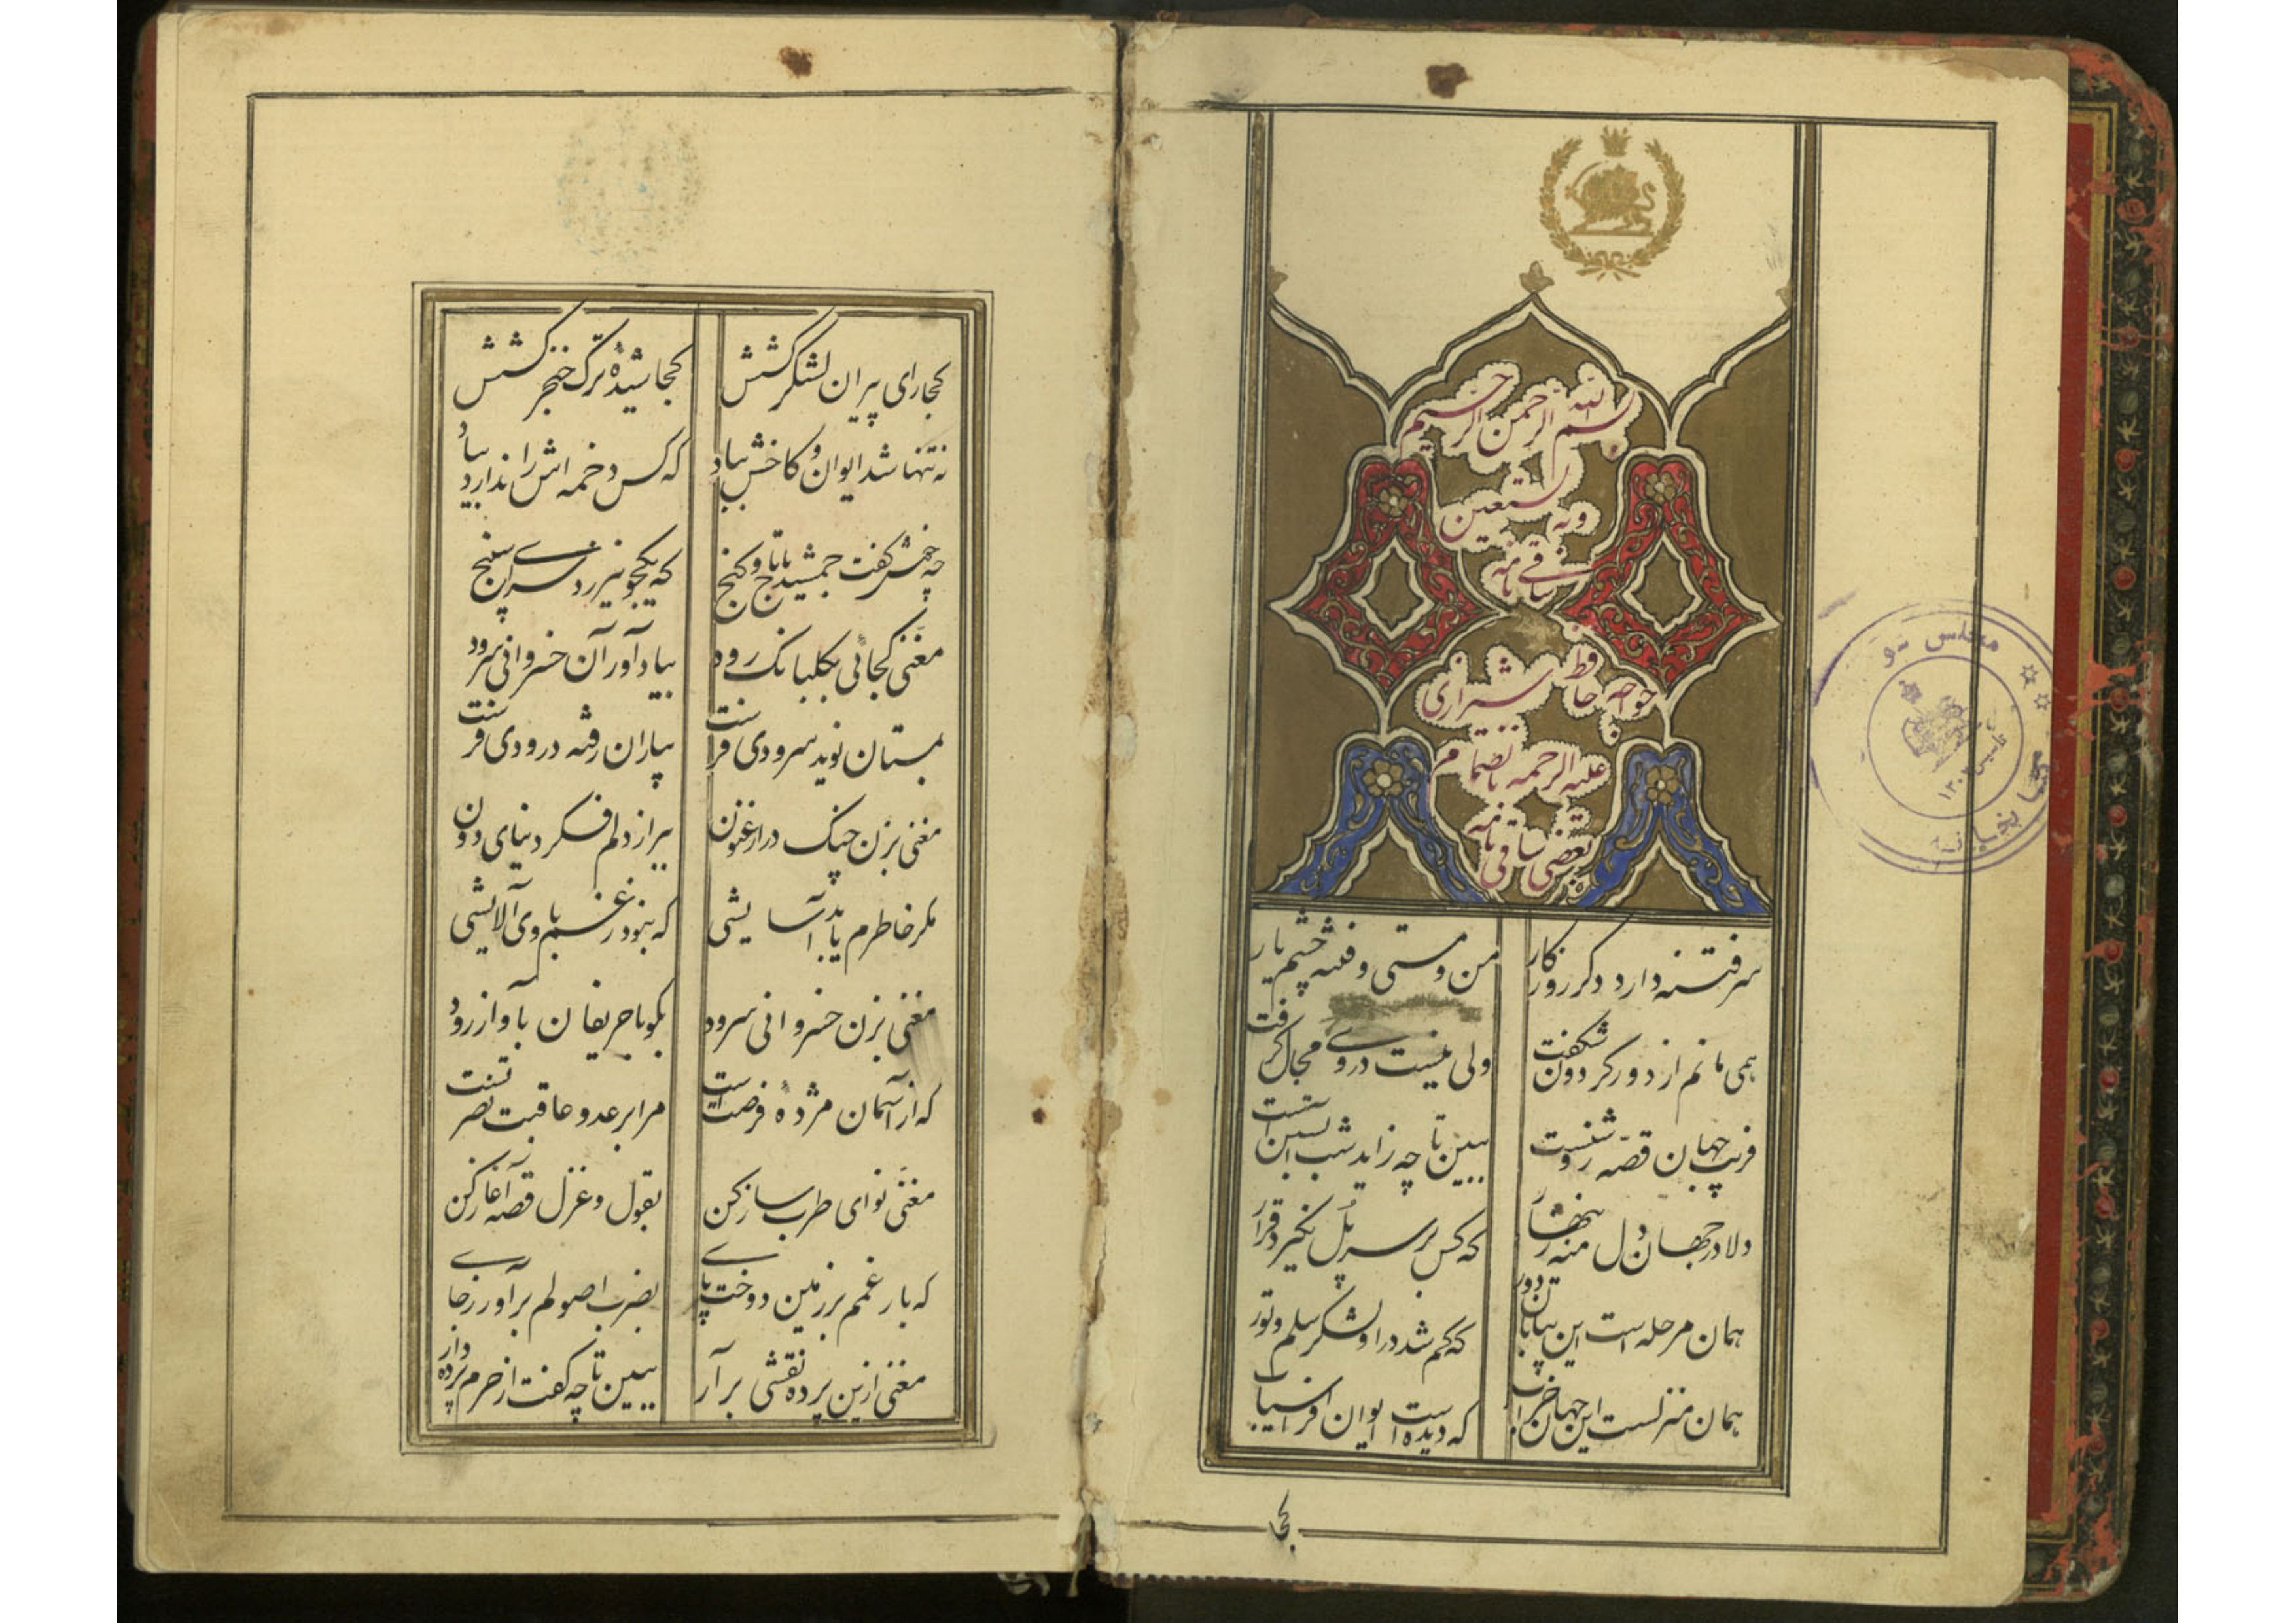 بسم الله الرحمن الرحیم
وبه نستعین
ساقی نامه
خوجه حافظ شیرازی
علیه الرحمه بانضمام
بعضی ساقی نامه
سر فتنه دارد دکر روزکار من و مستی و فتنه چشم یار
همی مانم از دور کردون شکفت ولی نیست در وی مجال کرفت
فریب جهان قصه روشنست ببین تا چه زاید شب آبستن است
دلا در جهان دل منه زینهار که کس بر سر پل نکیرد قرار
همان مرحله است این بیابان دور که کم شد در او لشکر سلم و تور
همان منزلست این جهان خراب که دیده است ایوان افراسیاب
کجا
مجلس
تأسیس
کجا رای پیران لشکر کشش کجا شیدهٔ ترک خنجر کشش
نه تنها شد ایوان و کاخش بباد که کس دخمه اش را ندارد بیاد
چه خوش کفت جمشید با تاج و کنج که یکجو نیرزد سرای سپنج
مغنی کجائی بکلبانک رود بیاد آور آن خسروانی سرود
بمستان نوید سرودی فرست بیاران رفته درودی فرست
مغنی بزن چنک در ارغنون ببر از دلم فکر دنیای دون
مکر خاطرم یابد آسایشی که نبود ز غم با وی آلایشی
مغنی بزن خسروانی سرود بکو با حریفان بآواز رود
که از آسمان مژدهٔ فرصت است مرا بر عدو عاقبت نصرتست
مغنی نوای طرب ساز کن بقول و غزل قصه آغاز کن
که بار غمم بر زمین دوخت پای بضرب اصولم برآور ز جای
مغنی ازین پرده نقشی برآر ببین تا چه کفت از حرم پرده دار